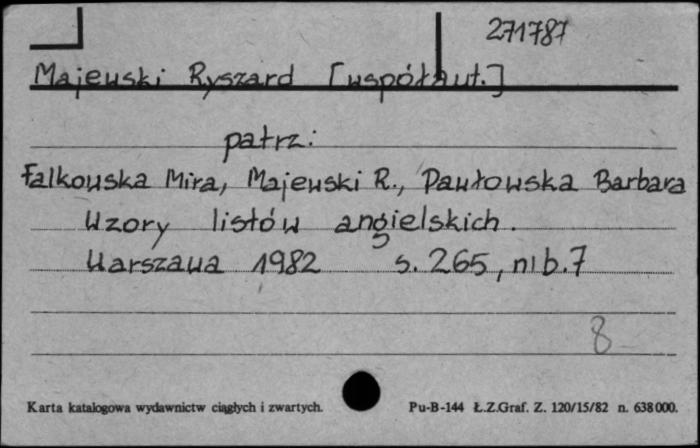 271787
Majewski Ryszard [współaut.]
patrz:
Falkowska Mira, Majewski R., Pawłowska Barbara
Wzory listów angielskich.
Warszawa 1982 s. 265, nlb. 7
8
Karta katalogowa wydawnictw ciągłych i zwartych. Pu-B-144 Ł.Z.Graf. Z. 120/15/82 n. 638000.